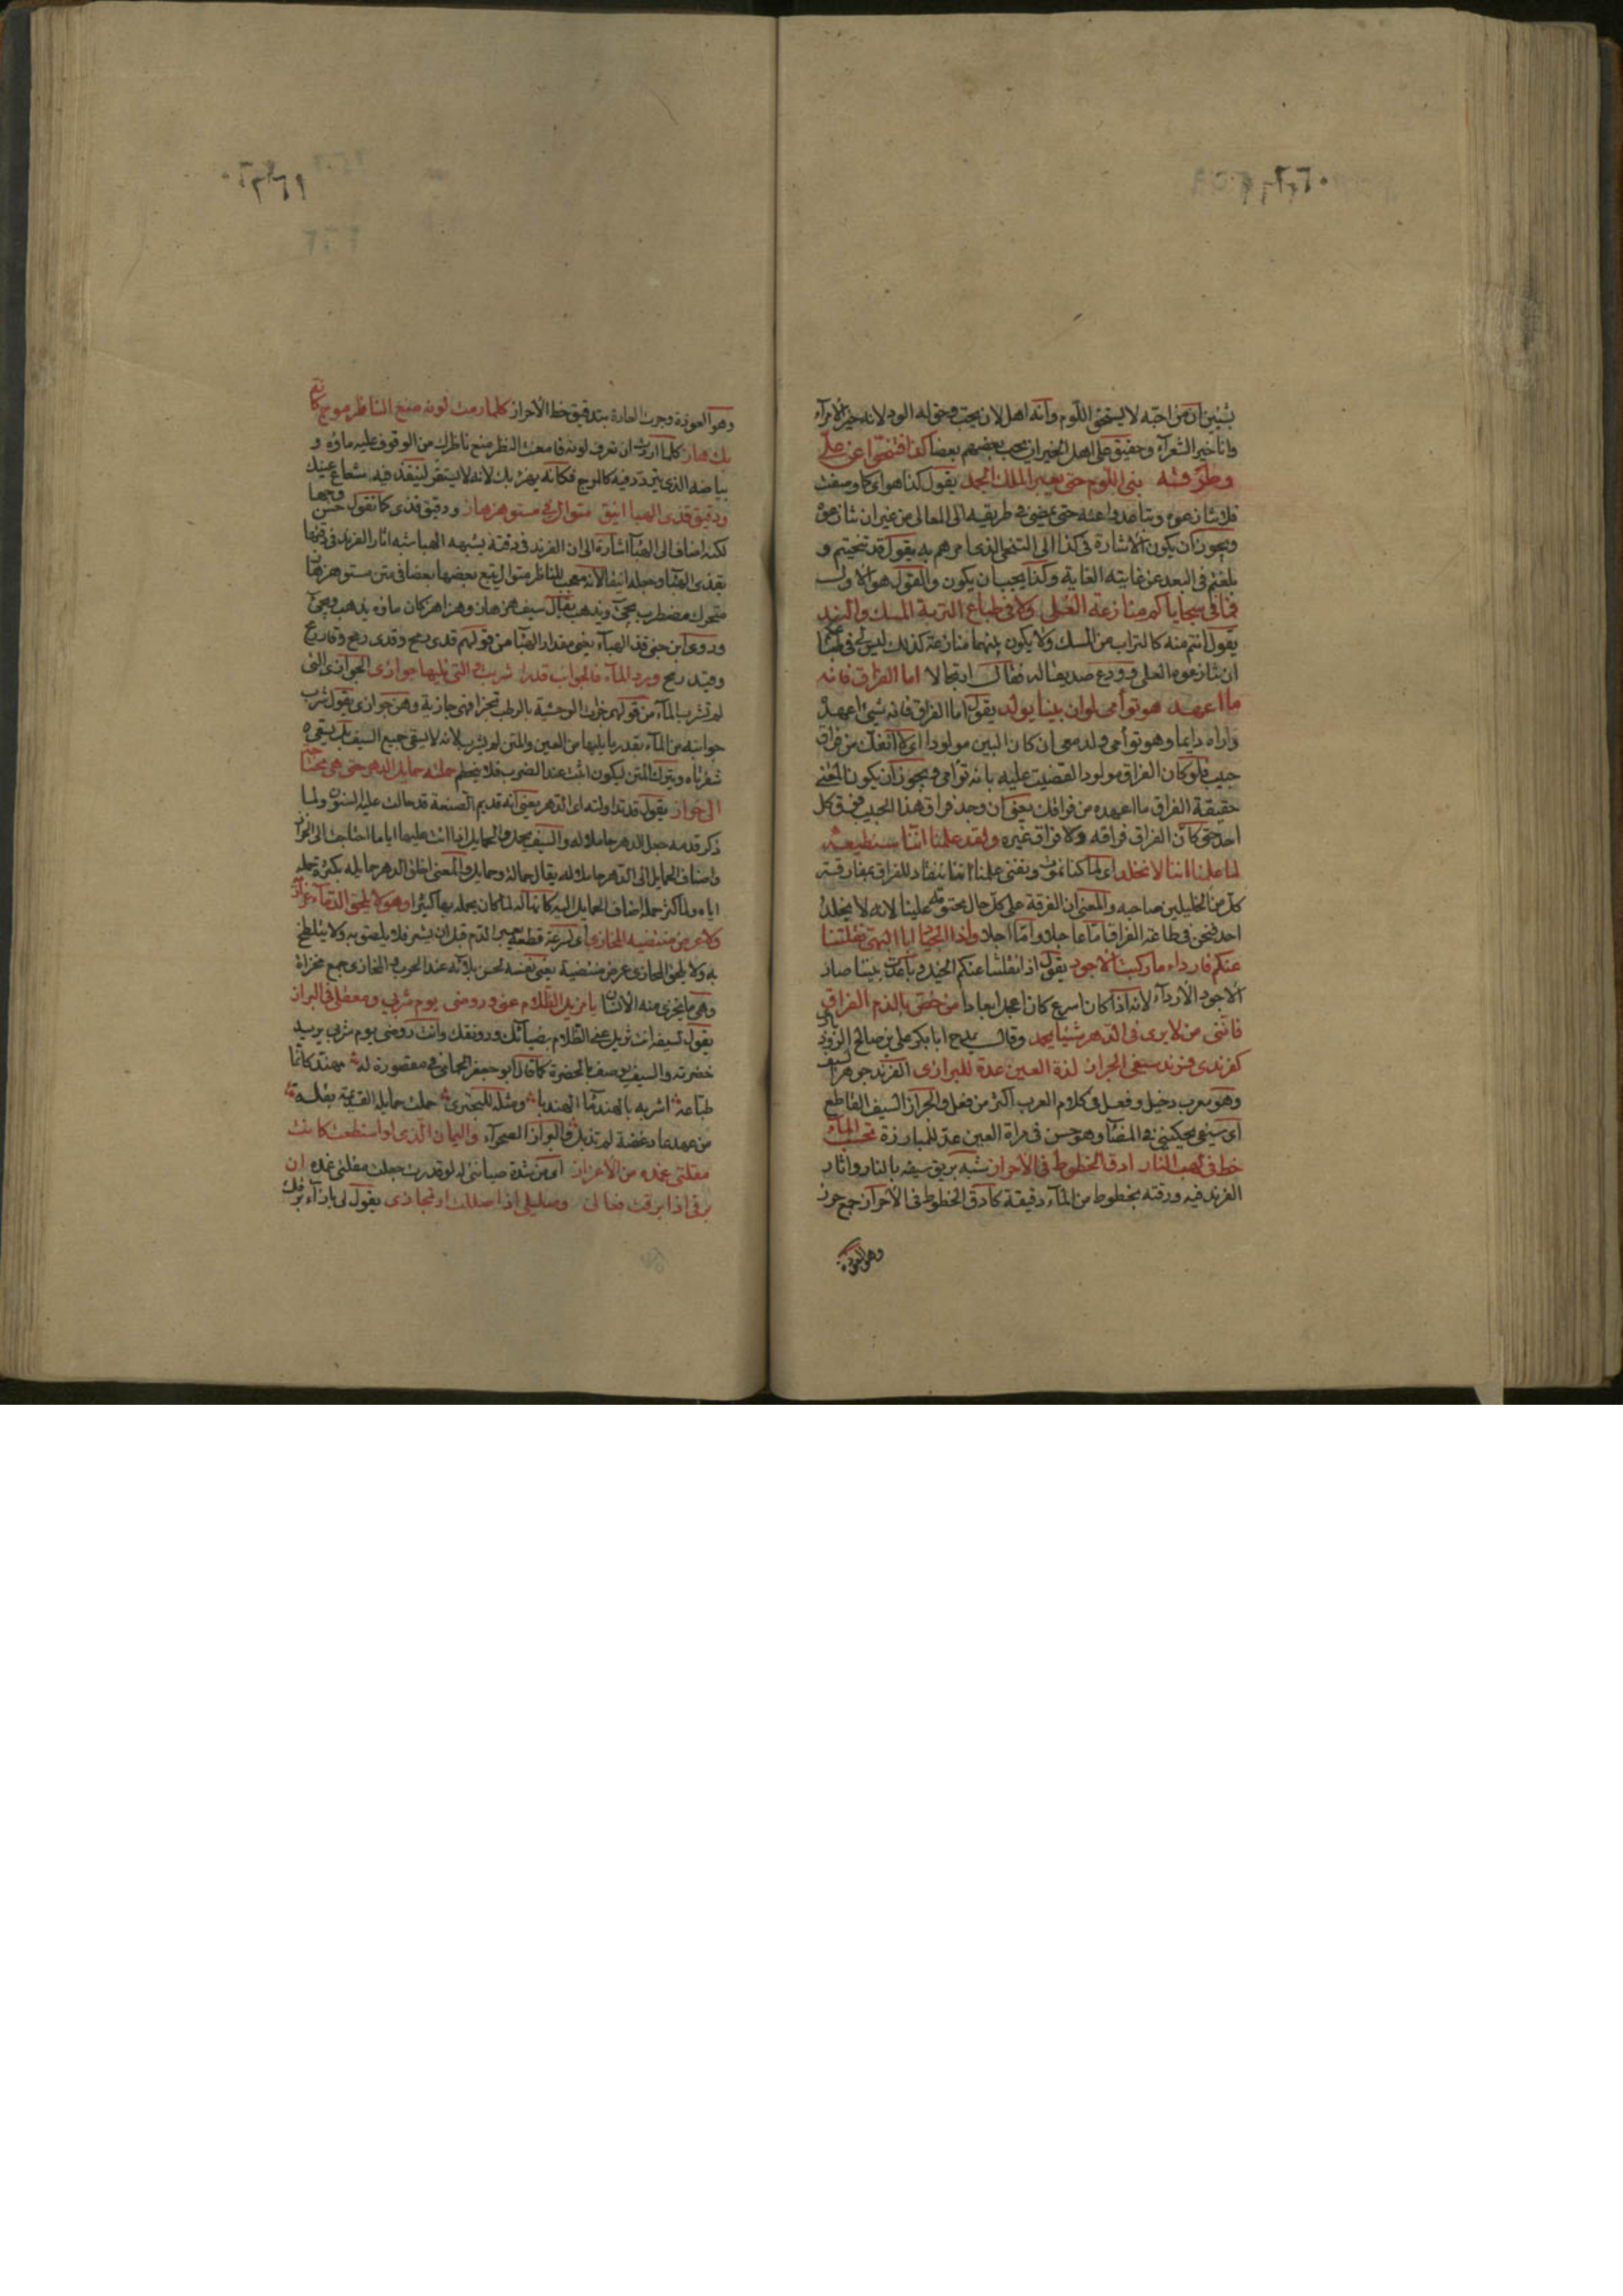 يتبين ان من احبه لا يستحق اللوم وانه اهل لان يحب وحق له الود لانه خير الامرآء
وانا خير الشعرآء وحقيق على اهل الخير ان يحب بعضهم بعضا كذا فتنحوا عن علي
وطرقه بنى اللوم حتى يعبر الملك الجعد يقول كذا هو اى كما وصفت
فلا تنازعوه وتباعدوا عنه حتى يمضى فى طريقه الى المعالى من غير ان تنازعوه
ويجوز ان يكون الاشارة فى كذا الى التنحى الذى امرهم به يقول قد تنحيتم و
بلغتم فى البعد عن غايته الغاية وكذا يجب ان يكون والقول هو الاول
فما فى سجاياكم منازعة العلى ولا فى طباع التربة المسك والند
يقول انتم منه كالتراب من المسك ولا يكون بينهما منازعة كذلك ليس لكم فى طبعكم
ان تنازعوه العلى وودع صديقا له فقال ارتجالا اما الفراق فانه
ما اعهد هو توأمى لو ان بينا يولد يقول اما الفراق فانه شىء اعهده
واراه دايما وهو توأمى ولد معى ان كان البين مولودا اى لا انفك من فراق
حبيب فلو كان الفراق مولودا لقضيت عليه بانه توأمى ويجوز ان يكون المعنى
حقيقة الفراق ما اعهده من فراقك يعنى ان وجد فراق هذا الحبيب فوق كل
احد حتى كان الفراق فراقه ولا فراق غيره ولقد علمنا اننا سنطيعه
لما علمنا اننا لا نخلد اى لما كنا نموت ونفنى علمنا اننا ننقاد للفراق بمفارقة
كل من الخليلين صاحبه والمعنى ان الفرقة على كل حال محتومة علينا لانه لا يخلد
احد فنحن فى طاعة الفراق اما عاجلا واما آجلا واذا الجياد ابا البهى نقلننا
عنكم فاردأ ما ركبت الاجود يقول اذا نقلتنا عنكم الخيل وباعدت بيننا صار
الاجود الاردأ لانه اذا كان اسرع كان اعجل ابعادا من خص بالذم الفراق
فاننى من لا يرى فى الدهر شيئا يحمد وقال يمدح ابا بكر على بن صالح الروذبارى
كفرندى فرند سيفى الجراز لذة العين عدة للبراز الفرند جوهر السيف
وهو معرب دخيل وفعل فى كلام العرب اكثر من فعل والجراز السيف القاطع
اى سيفى يحكينى فى المضآء وهو حسن فى مرآة العين عدة للمبارزة تحسب المآء
خط فى لهب النار ادق الخطوط فى الاحراز شبه بريق سيفه بالنار وآثار
الفرند فيه ودقته بخطوط من المآء دقيقة كادق الخطوط فى الاحراز جمع حرز
وهو العوذة
وهو العوذة وجرت العادة بتدقيق خط الاحراز كلما رمت لونه منع الناظر موج كانه
منك هاز كلما اردت ان تعرف لونه فامعنت النظر منع ناظرك من الوقوف عليه ماؤه و
بياضه الذى يتردد فيه كالموج فكانه يهزء بك لانه لا يستقر لينفذ فيه شعاع عينك
ودقيق قذى الهبآء انيق متوال فى مستو هزهاز ودقيق قذى كما تقول حسن وجها
لكنه اضاف الى الهبآء اشارة الى ان الفرند فى دقته يشبه الهبا شبه آثار الفرند فى دقتها
بقذى الهبآء وجعله انيقا لانه معجب للناظر متوال يتبع بعضها بعضا فى متن مستو هزهاز
متحرك مضطرب يجىء ويذهب يقال سيف هزهاز وهزاهز كان ماؤه يذهب ويجىء
وروى ابن جنى قذى الهبآء يعنى مقدار الهبآء من قولهم قدى رمح وقدى رمح وقاد رمح
وقيد رمح ورد المآء فالجوانب قدرا شربت والتى تليها جوازى الجوازى التى
لم تشرب المآء من قولهم جزأت الوحشية بالرطب تجزأ فهى جازية وهن جوازى يقول شرب
جوانبه من المآء بقدر ما يليها من العين والمتن لم يشرب لانه لا يسقى جميع السيف بل يسقى
شفرتاه ويترك المتن ليكون اثبت عند الضرب فلا ينحطم حملته حمايل الدهر حتى هى محتاجة
الى خراز يقول قد تداولته ايدى الدهر يعنى انه قديم الصنعة قد حالت عليه السنون ولما
ذكر قدمه جعل الدهر حاملا له والسيف يحمل بالحمايل اذا اتت عليها اياما احتاجت الى الخراز
واضاف الحمايل الى الدهر حاملا له يقال حمالة وحمايل والمعنى اخلق الدهر حمايله بكثرة حمله
اياه ولما كثر حمله اضاف الحمايل اليه كانها له لما كان يحمله بها كثيرا وهو لا يلحق الدمآء غراريه
ولا عرض منتضيه المخازى اى لسرعة قطعه يسبق الدم قبل ان يشعر فلا يلصق به ولا يتلطخ
به ولا يلحق المخازى عرض منتضيه يعنى نفسه لحسن بلائه عند الحرب والمخازى جمع مخزاة
وهى ما يخزى منه الانسان يا مزيل الظلام عنى وروضى يوم شربى ومعقلى فى البراز
يقول لسيفه انت تزيل عنى الظلام بضيائك ورونقك وانت روضى يوم شربى يريد
خضرته والسيف يوصف بالخضرة كما قال ابو جعفر الحمانى فى مقصورة له مهند كانما
طباعه اشربه بالهند مآء الهندبا ومثله للبحترى حملت حمايله القديمة بقلة
من عهد عاد غضة لم تذبل والبراز الصحرآء واليمان الذى لو اسطعت كانت
مقلتى غمده من الاعزاز اى من شدة صيانتى له لو قدرت جعلت مقلتى غمده ان
برقى اذا برقت فعالى وصليلى اذا صللت ارتجازى يقول لى بازآء برقك